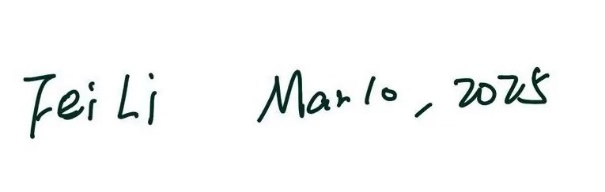 Fei Li Mar 10, 2025